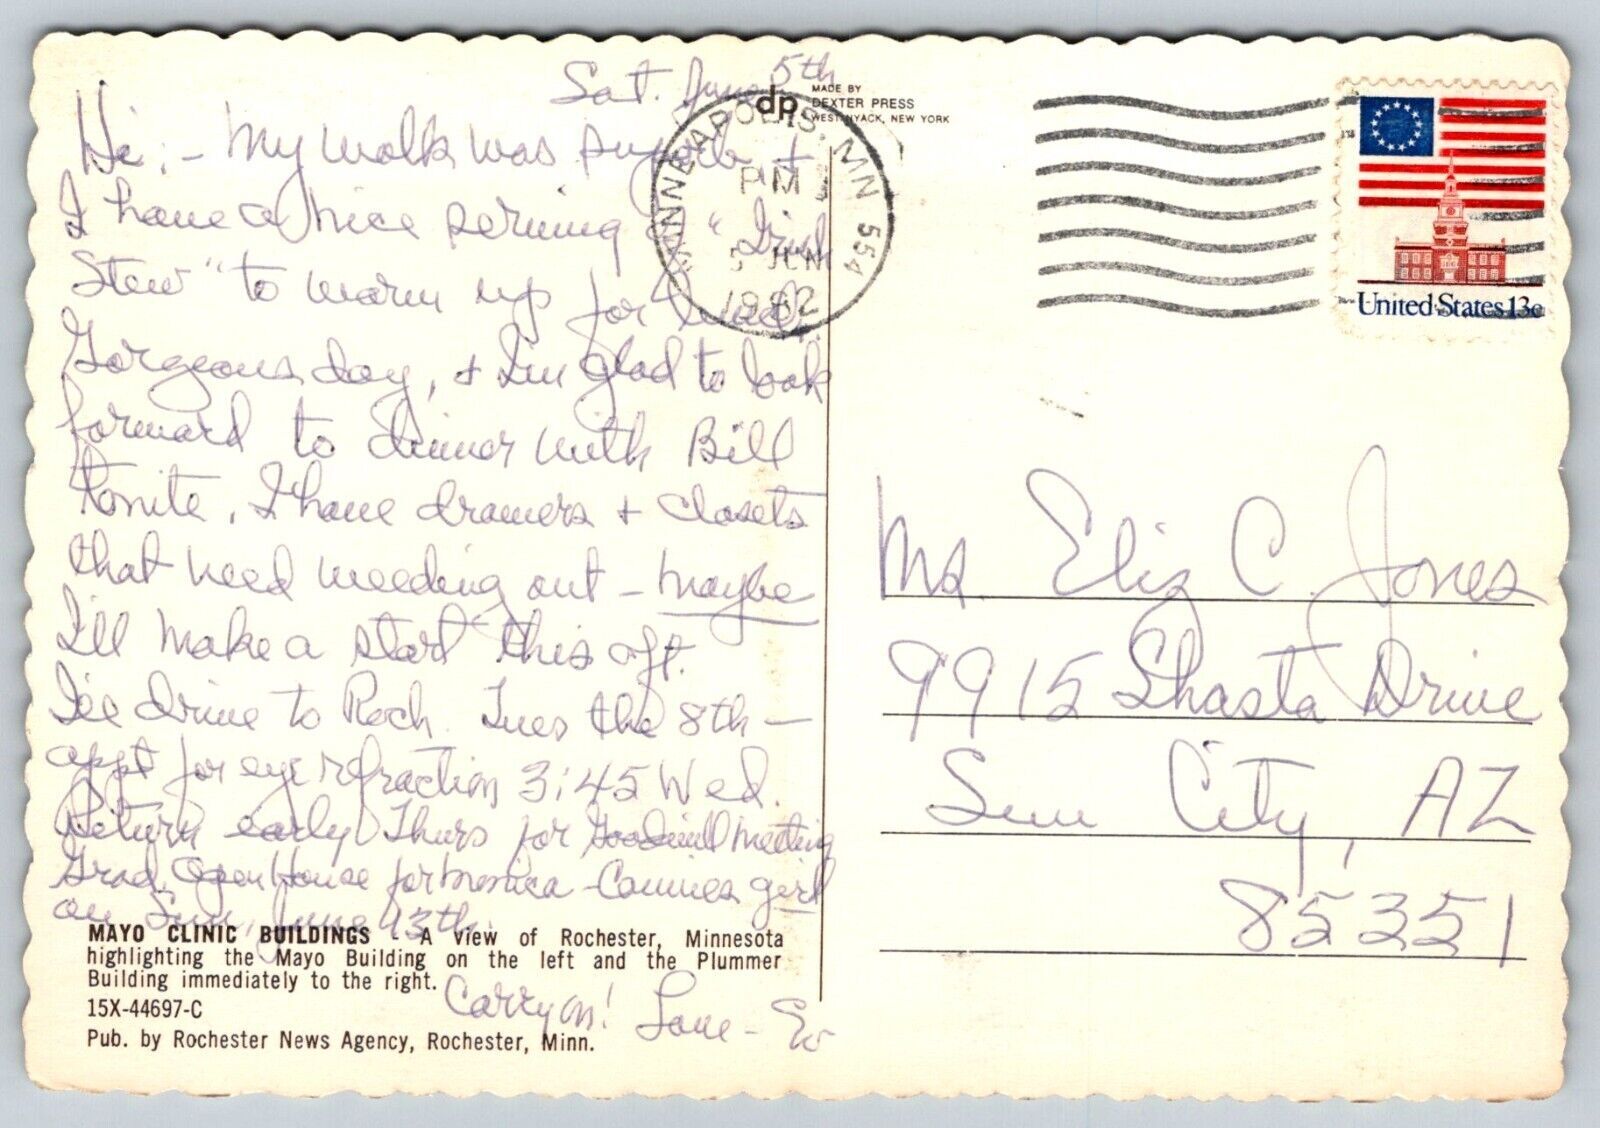 Sat. June 5th
Hi:- My walk was superb, +
I have a nice serving of "Irish
Stew" to warm up for lunch.
Gorgeous day, + I'm glad to look
forward to dinner with Bill
tonite. I have drawers + closets
that need weeding out - maybe
I'll make a start this aft.
I'll drive to Roch. Tues the 8th -
appt for eye refraction 3:45 Wed.
Return early Thurs for Goodwill meeting
Grad. Open House for Monica - Connies girl
on Sun, June 13th.
Carry on! Love - Ev
MAYO CLINIC BUILDINGS - A view of Rochester, Minnesota
highlighting the Mayo Building on the left and the Plummer
Building immediately to the right.
15X-44697-C
Pub. by Rochester News Agency, Rochester, Minn.
dp
MADE BY
DEXTER PRESS
WEST NYACK, NEW YORK
MINNEAPOLIS, MN 554
PM
5 JUN
1982
United States 13c
Ms Eliz C. Jones
9915 Shasta Drive
Sun City, AZ
85351